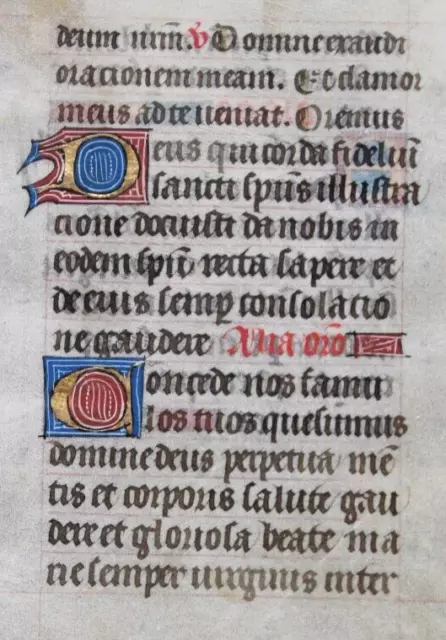 deum nrm̄. V Domine exaudi
orationem meam. Et clamor
meus ad te ueniat. Oremus
Deus qui corda fideliū
sancti spūs illustra
cione docuisti da nobis in
eodem spū recta sapere et
de eius semꝑ consolacio
ne gaudere Alia orō
Concede nos famu
los tuos quesumus
domine deus perpetua mē
tis et corporis salute gau
dere et gloriosa beate ma
rie semper uirginis inter